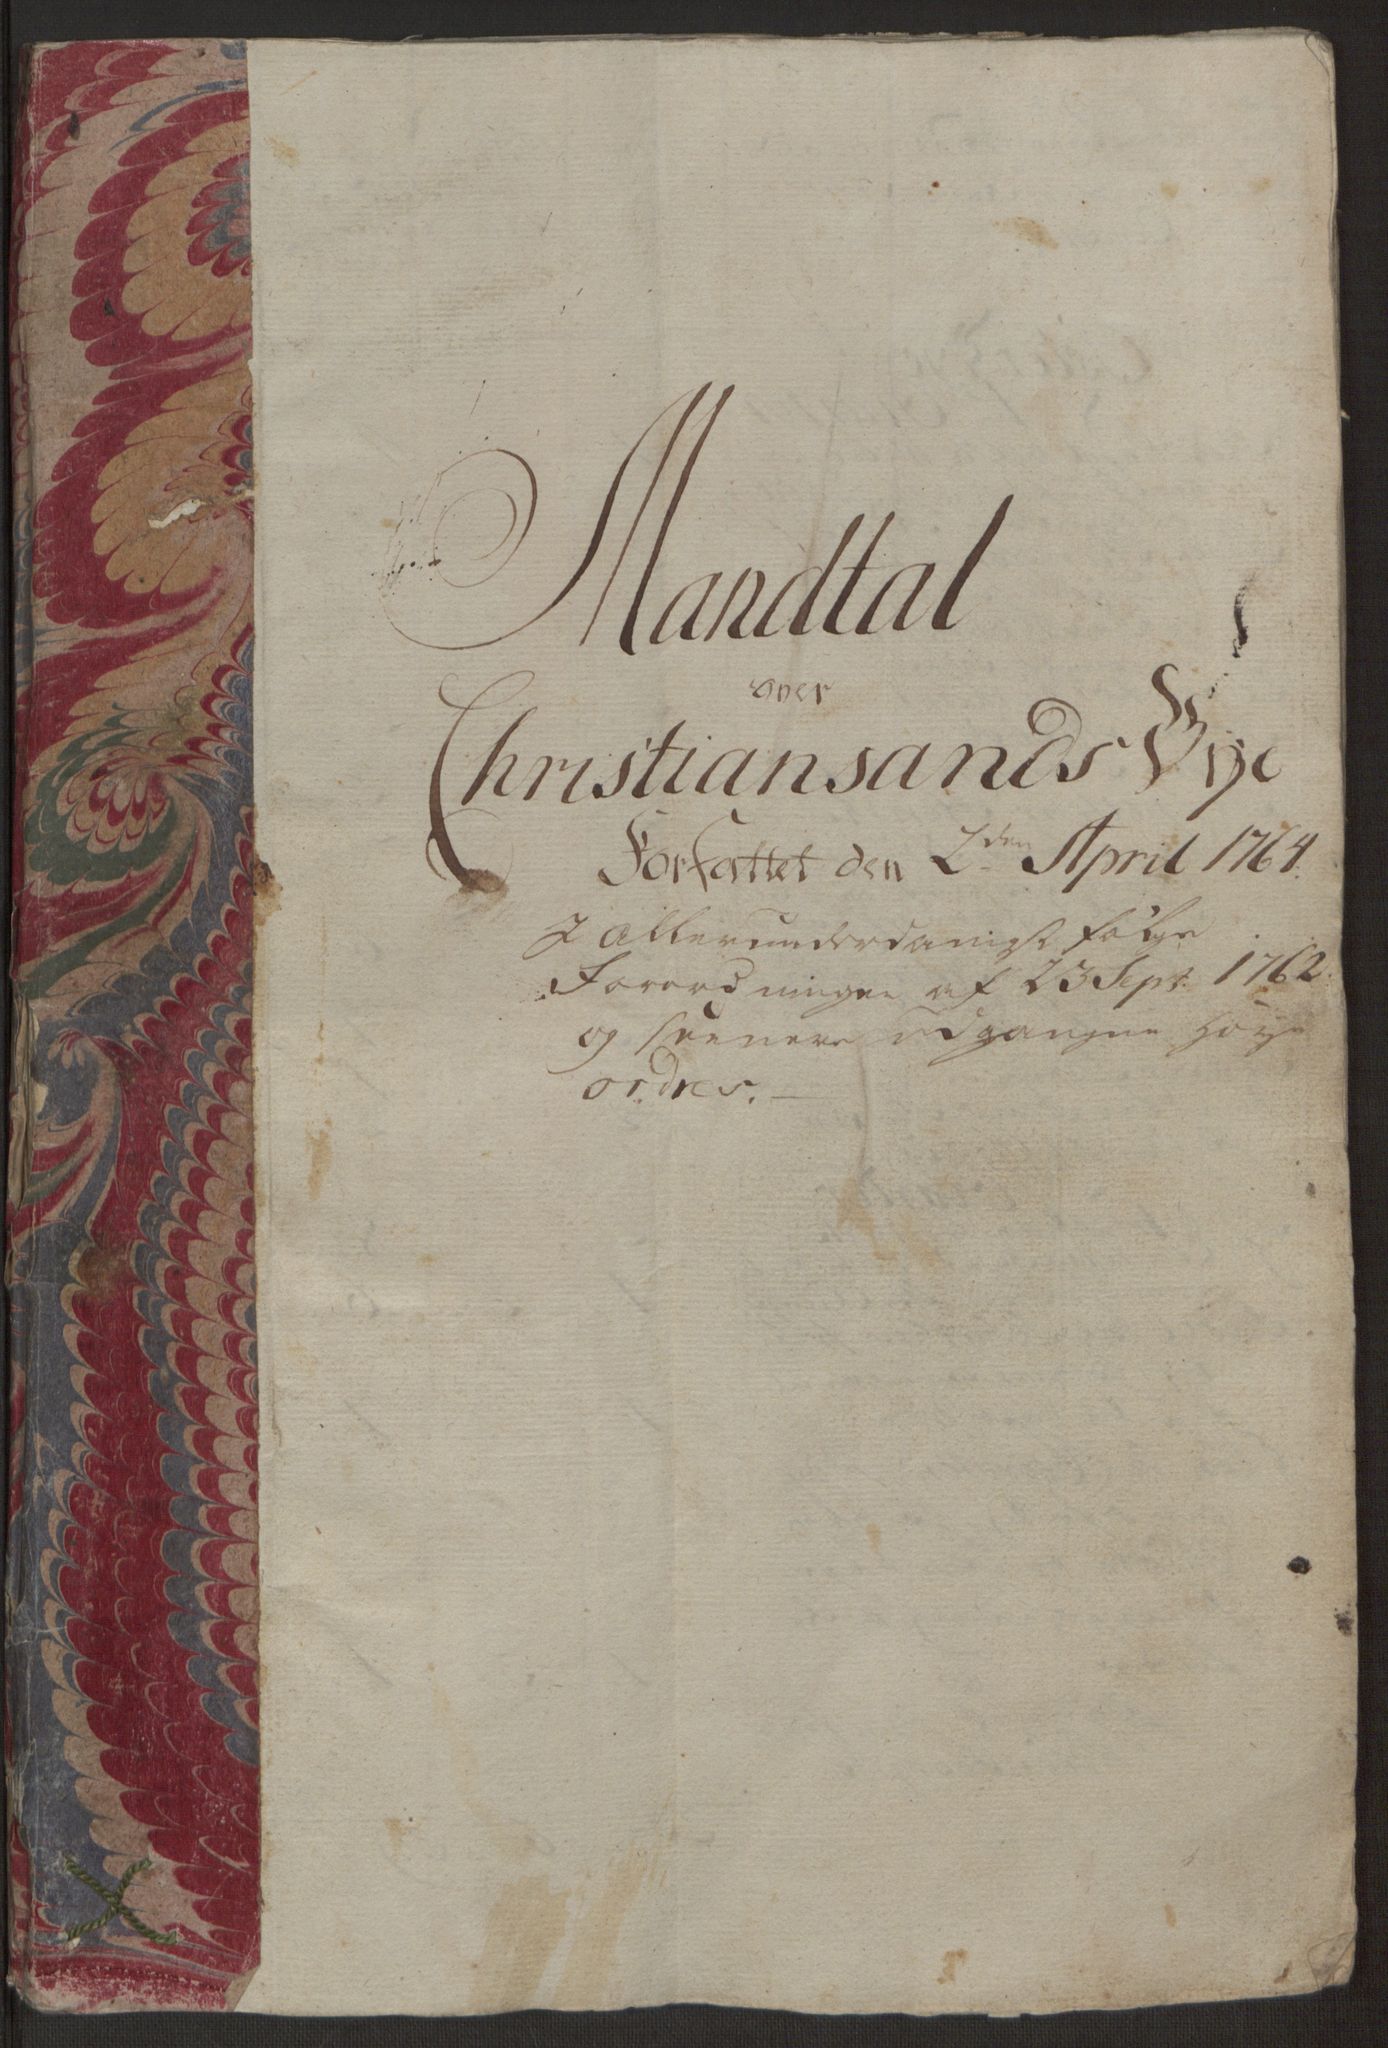 Mandtal
over
Christiansands Bye
Forfattet den 2den April 1764.
I allerunderdanigst følge
Forordningen af 23 Sept. 1762.
og seenere udgangne høye
ordres. —